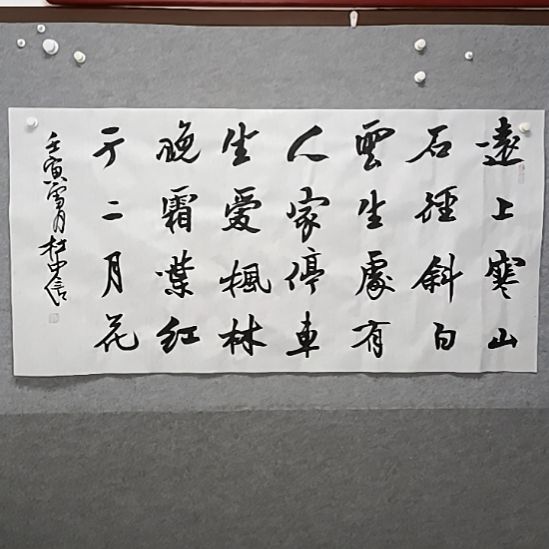 遠上寒山
石徑斜白
雲生處有
人家停車
坐愛楓林
晚霜葉紅
于二月花
壬寅雪月杜中信